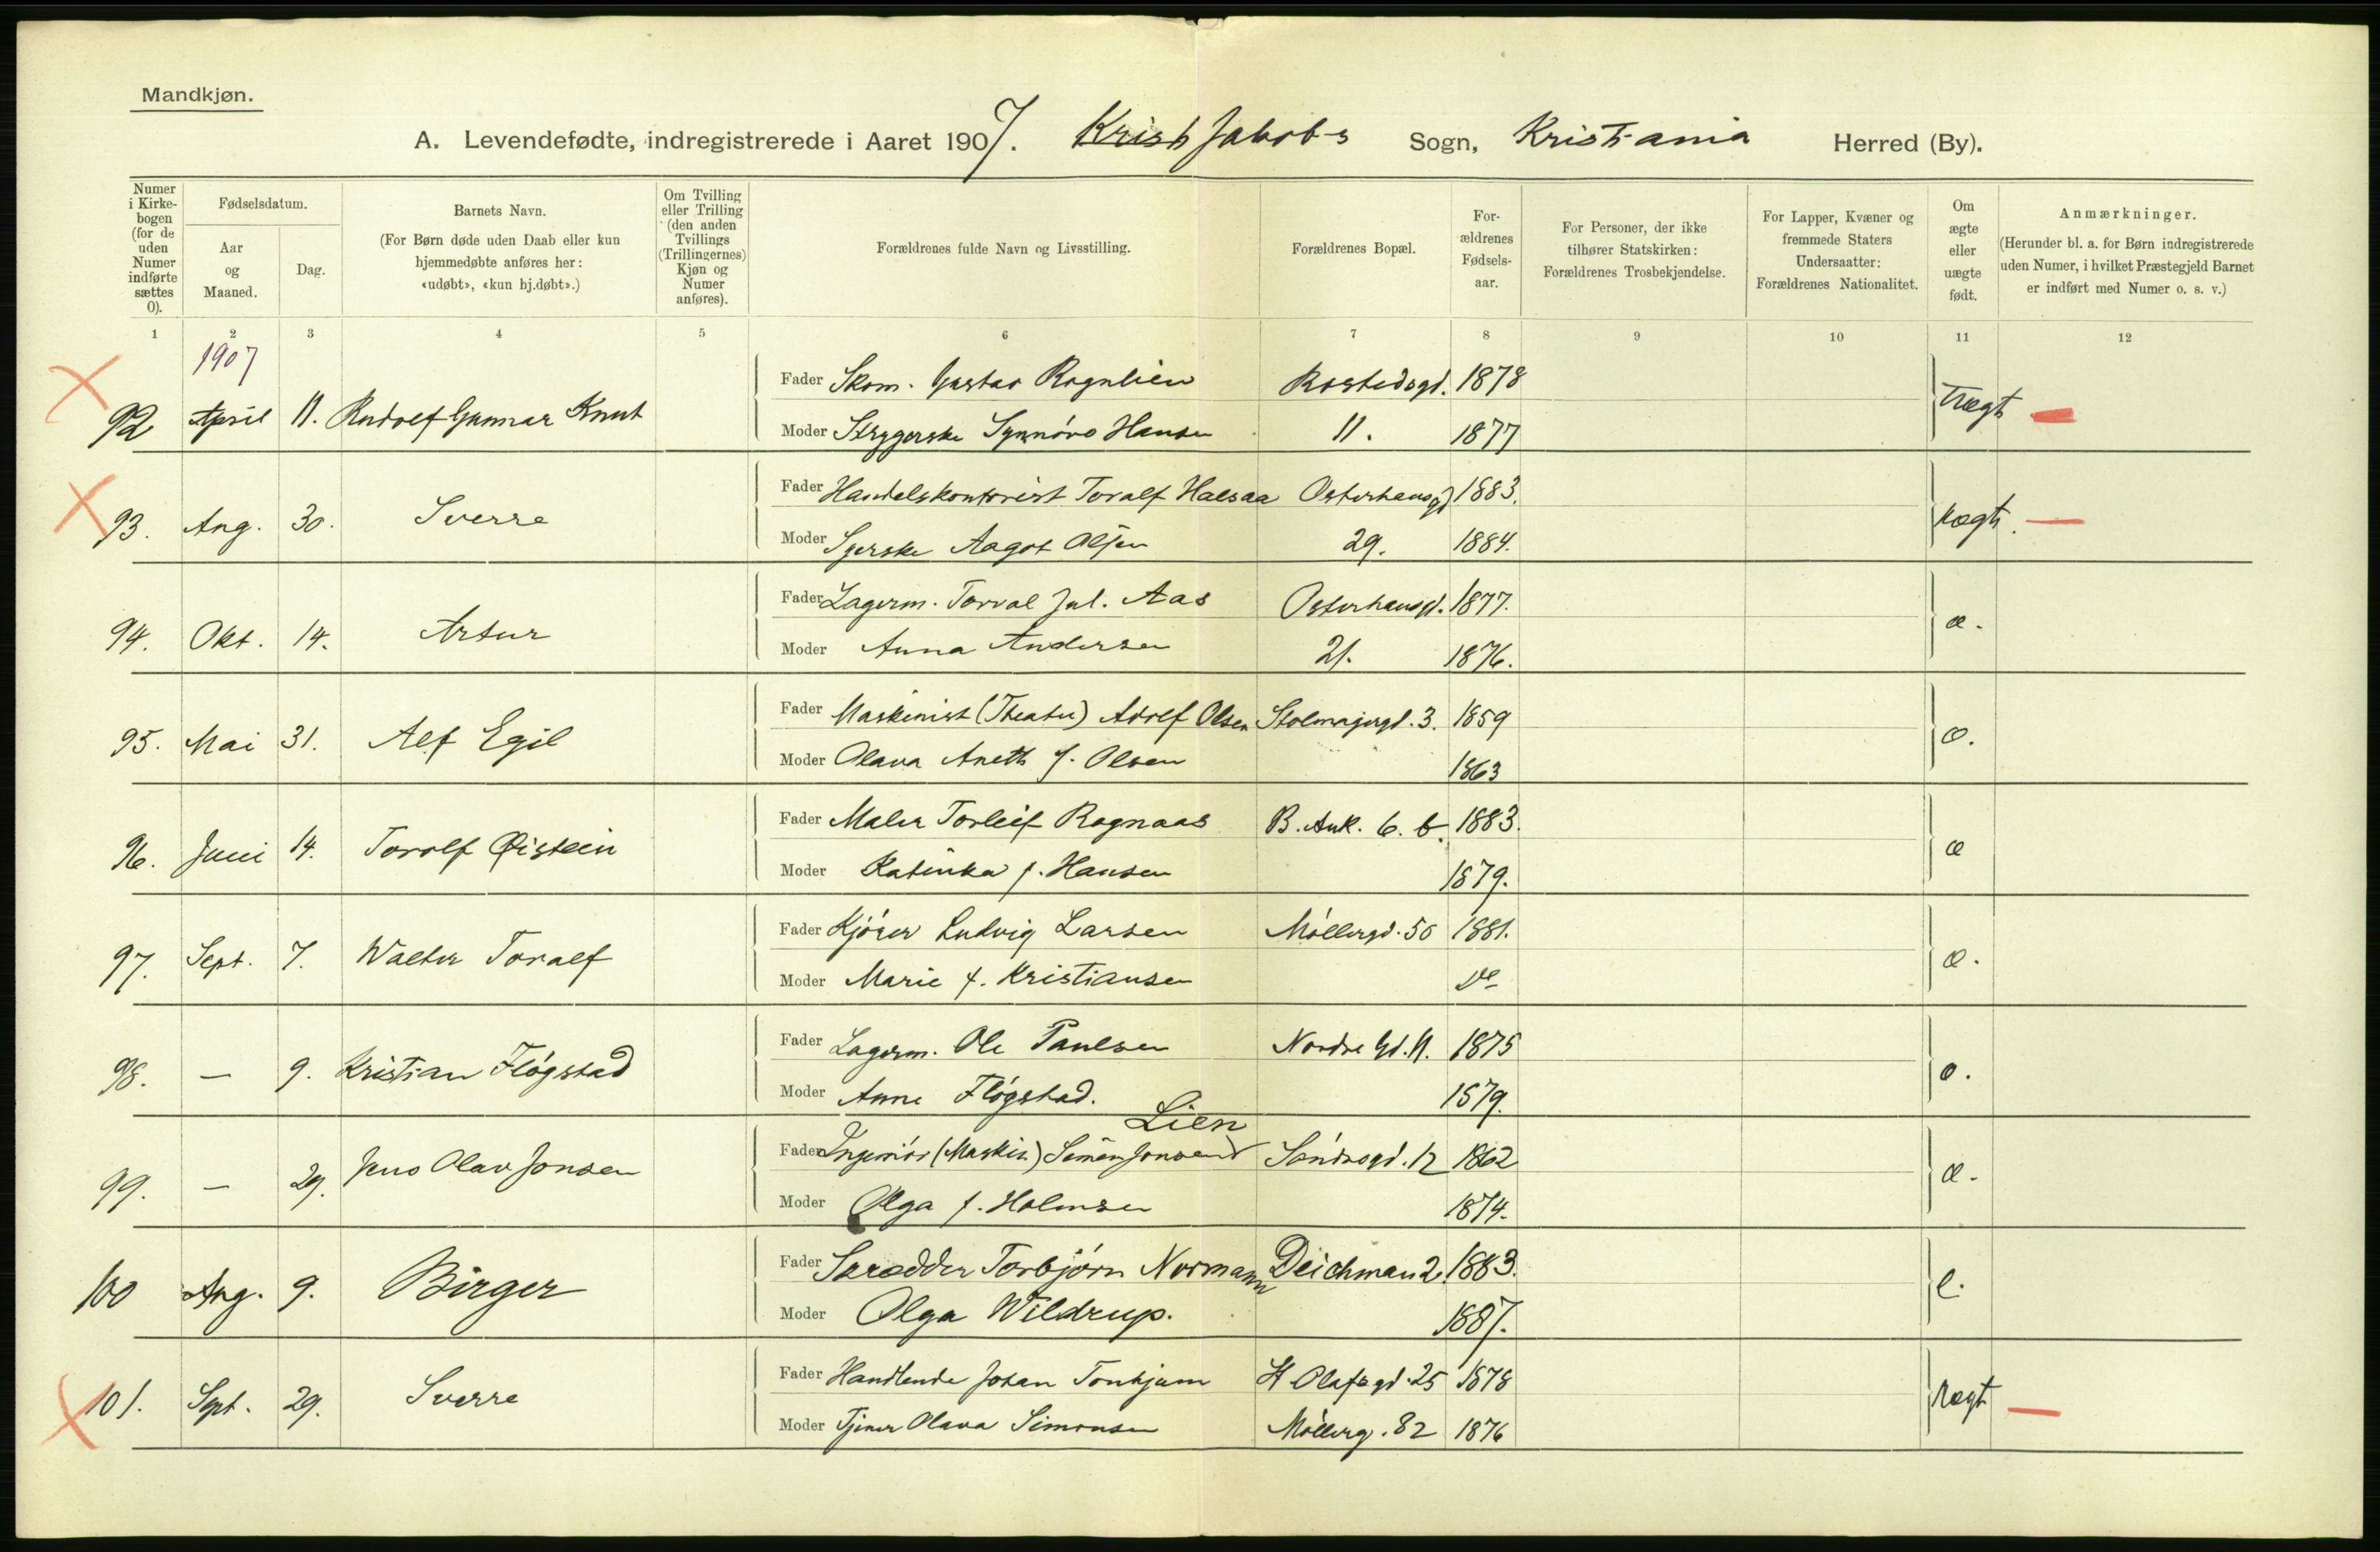 Mandkjøn.
A. Levendefødte, indregistrerede i Aaret 1907. Krist Jakobs Sogn, Kristiania Herred (By).
Numer i Kirkebogen (for de uden Numer indførte sættes 0).
Fødselsdatum.
Aar og Maaned.
Dag.
Barnets Navn.
(For Børn døde uden Daab eller kun hjemmedøbte anføres her: «udøbt», «kun hj.døbt».)
Om Tvilling eller Trilling (den anden Tvillings (Trillingernes) Kjøn og Numer anføres).
Forældrenes fulde Navn og Livsstilling.
Forældrenes Bopæl.
Forældrenes Fødselsaar.
For Personer, der ikke tilhører Statskirken: Forældrenes Trosbekjendelse.
For Lapper, Kvæner og fremmede Staters Undersaatter: Forældrenes Nationalitet.
Om ægte eller uægte født.
Anmærkninger.
(Herunder bl. a. for Børn indregistrerede uden Numer, i hvilket Præstegjeld Barnet er indført med Numer o. s. v.)
1 2 3 4 5 6 7 8 9 10 11 12
1907
92 April 11. Rudolf Gunnar Knut
Fader Skom. Gustav Rognlien Rostedsgd. 1878
Moder Strygerske Synnöve Hansen 11. 1877
uægt —
93. Aug. 30. Sverre
Fader Handelskontorist Toralf Halsaa Osterhausgd 1883.
Moder Syerske Aagot Olsen 29. 1884.
uægt. —
94. Okt. 14. Artur
Fader Lagerm. Torval Jul. Aas Osterhausgd. 1877.
Moder Anna Andersen 21. 1876.
æ.
95. Mai 31. Alf Egil
Fader Maskinist (Theater) Adolf Olsen Stolmagergd. 3. 1859
Moder Olava Aneth f. Olsen 1863
æ.
96. Juni 14. Torolf Øistein
Fader Maler Torleif Rognaas B. Ank. 6. b. 1883.
Moder Katinka f. Hansen 1879.
æ
97. Sept. 7. Walter Toralf
Fader Kjörer Ludvig Larsen Möllergd. 50 1881.
Moder Marie f. Kristiansen do
æ.
98. — 9. Kristian Flögstad
Fader Lagerm. Ole Paulsen Nordre Gd. 11. 1875
Moder Anne Flögstad. 1879.
æ.
99. — 29. Jens Olav Jonsen
Lien
Fader Ingeniör (Maskin) Simen Jonsen Söndregd. 12 1862
Moder Olga f. Holmsen 1874.
æ.
100 Aug. 9. Birger
Fader Skrædder Torbjörn Normann Deichman 2. 1883.
Moder Olga Wildrup. 1887.
101. Sept. 29. Sverre
Fader Handlende Johan Tonhjum St Olafsgd. 25 1878
Moder Tjener Olava Simonsen Möllerg. 82 1876
uægt —